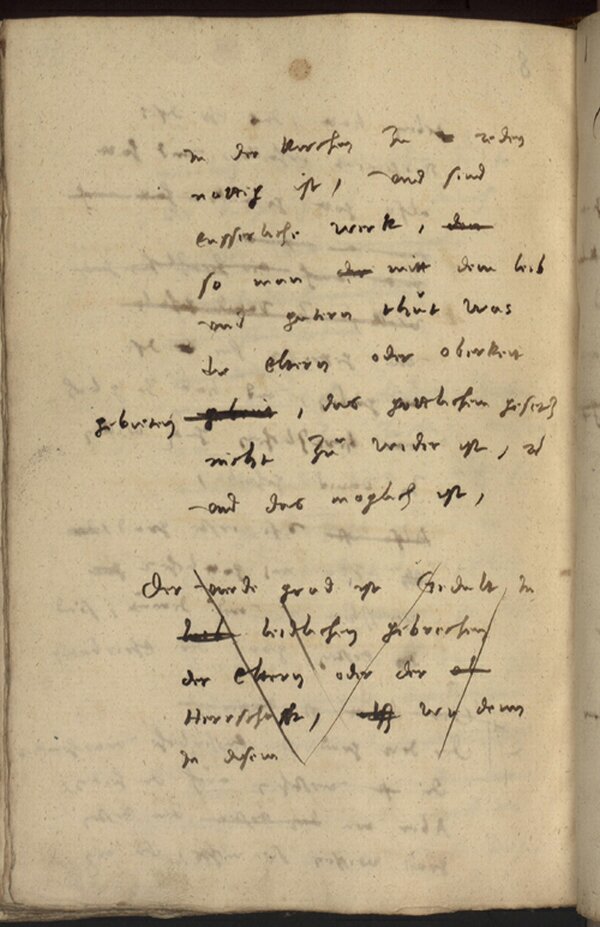 In der Kirchen zu reden
nottig ist, und sind
eusserliche werk, den
so man der mitt dem leib
und gutern thut was
die Eltern oder oberkeit
gebieten gebeut, das gottlichem gesetz
nicht zu wider ist, etc
und das moglich ist,
Der vierde grad ist Gedult in
leib leidlichen gebrechen
der Eltern oder der
Herrschafft, wie denn
in disem